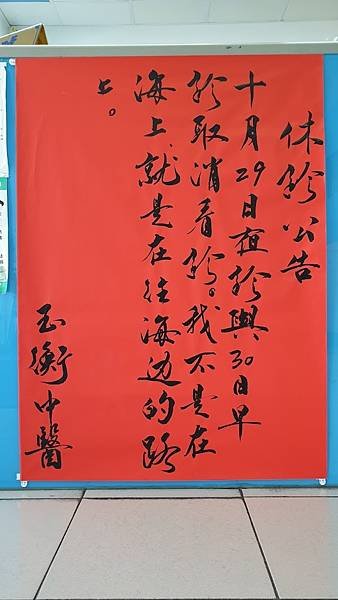 休診公告
十月29日夜診與30日早
診取消看診。我不是在
海上,就是在往海边的路
上。
玉衡中醫